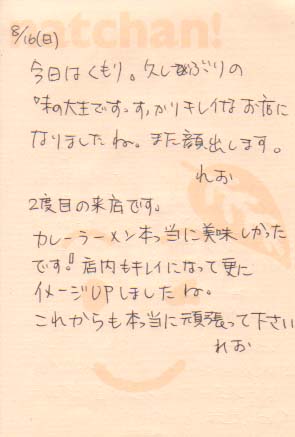 atchan!
8/16(日)
今日はくもり。久しぶりの
味の大王です。すっかりキレイなお店に
なりましたね。また顔出します。
れお
2度目の来店です。
カレーラーメン本当に美味しかった
です!店内もキレイになって更に
イメージUPしましたね。
これからも本当に頑張って下さい
れお